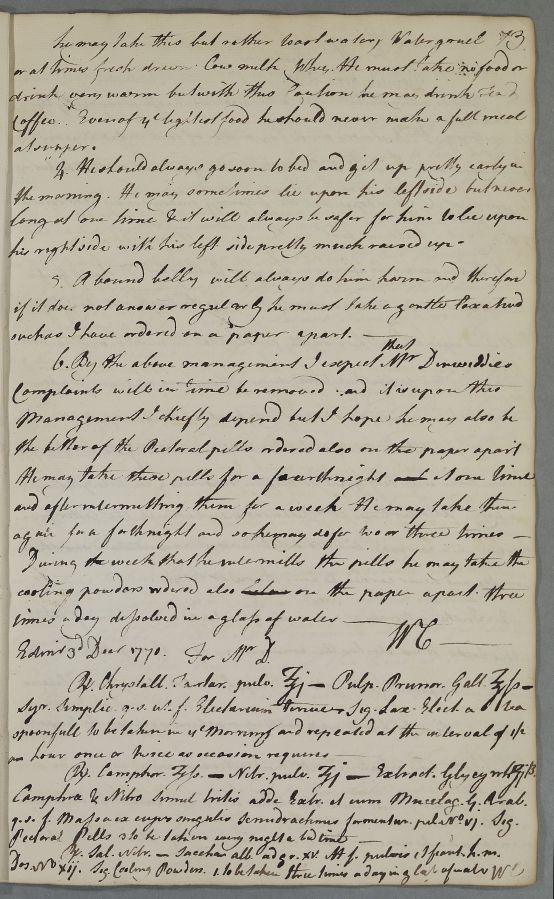 he may take this but rather toast water, Watergruel 73
or at times fresh drawn Cow milk, Whey. He must take no food or
drink very warm but with this Caution he may drink Tea &
Coffee. Even of ye lightest food he should never make a full meal
at supper.
4. He should always go soon to bed and get up pretty early in
the morning. He may sometimes lie upon his left side but never
long at one time & it will always be safer for him to lie upon
his right side with his left side pretty much raised up.
5. A bound belly will always do him harm and therefore
if it does not answer regularly he must take a gentle Laxative
such as I have ordered on a paper apart.
6. By the above management I expect that Mr Dinwiddies
Complaints will in time be removed and it is upon this
Management I chiefly depend but I hope he may also be
the better of the Pectoral pills ordered also on the paper apart
He may take these pills for a fourthnight at one time
and after intermitting them for a week He may take them
again for a forthnight and so he may do for two or three times
During the week that he intermitts the pills he may take the
cooling powders ordered also on the paper apart three
times a day dissolved in a glass of water
WC
Edinr 3d Decr 1770. For Mr D.
Rx. Chrystall. Tartar. pulv. ʒj — Pulp. Prunor. Gall. ʒss —
Syr. Simplic. q. s. ut f. Electarium Sig. Lax. Elect. a tea
spoonfull to be taken in ye Morning and repeated at the interval of 1/2
an hour once or twice as occasion requires
Rx. Camphor. ʒss. — Nitr. pulv. ʒj — Extract. Glycyrrh.
Camphra & Nitro simul tritis adde Extr. et cum Mucilag. G. Arab.
q. s. f. Massa ex cujus singulis semidrachmis formentur pil. No vj. Sig.
Pectoral Pills 3 to be taken every night at bed time
Rx. Sal. Nitr. — Sacchar. alb. ad gr. xv. M. f. pulvis et fiant h. m.
Dos. No xij. Sig. Cooling Powders. 1. to be taken three times a day in a glass of water WC